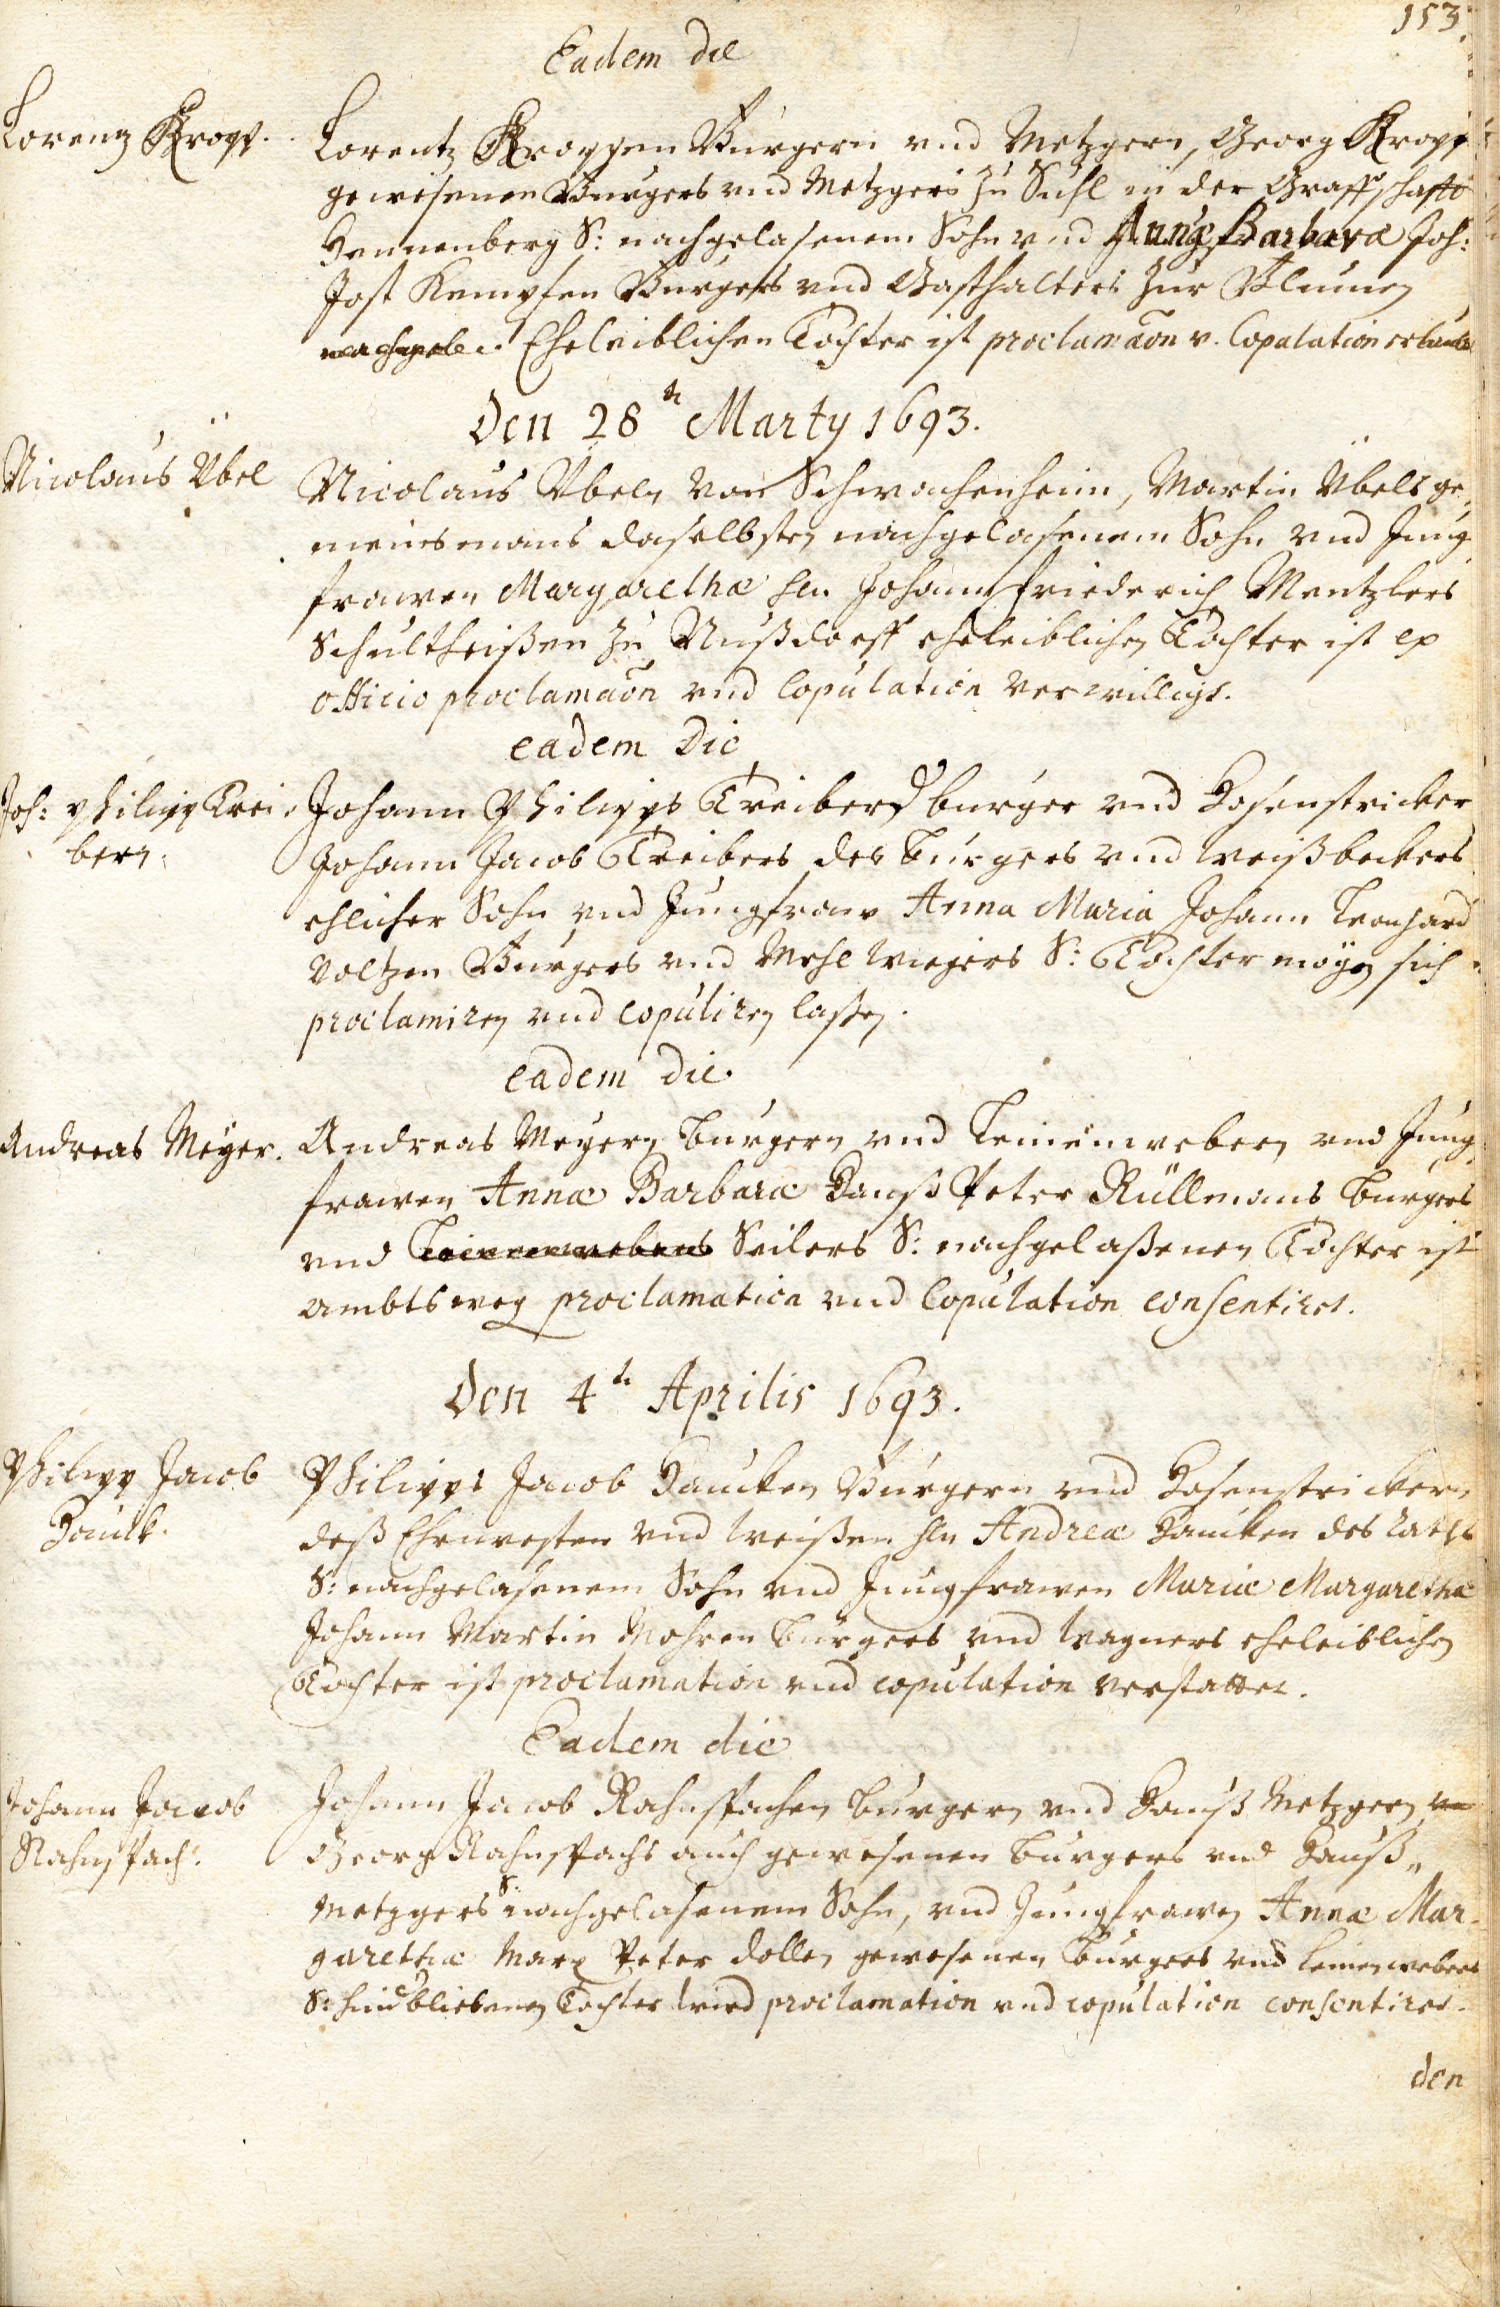 153.
Eadem die
Lorentz Kropf.
Lorentz Kropfen Burgern vnd Metzgern, Georg Kropf
gewesenen Burgers vnd Metzgers zu Suhl in der Graffschafft
Hennenberg S: nachgelasenem Sohn vnd Annæ Barbaræ Joh:
Jost Kempfen Burgers vnd Gasthalters zur Blumen
nachgel. Eheleiblichen Tochter ist proclamaõn v. Copulation erlaubt
Den 28ten Marty 1693.
Nicolaus Übel
Nicolaus Übeln von Schwachenheim, Martin Übels ge-
meinsmans daselbsten nachgelasenem Sohn vnd Jung
frawen Margarethæ hln. Johann Friederich Mentzlers
Schultheißen zu Nußdorff eheleiblichen Tochter ist ex
officio proclamaõn vnd Copulation verwilligt.
eadem Die
Joh: Philipp Trei-
bern.
Johann Philipps Treiber burger vnd Hosenstricker
Johann Jacob Treibers des burgers vnd weißbeckers
ehlicher Sohn vnd Jungfraw Anna Maria Johann Leonhard
Voltzen Burgers vnd Mehlwiegers S: Tochter mögen sich
proclamiren vnd copuliren laßen.
eadem die.
Andreas Meyer.
Andreas Meyern burgern vnd Leinenwebern vnd Jung
frawen Annæ Barbaræ Hanß Peter Rüllmans burgers
vnd Leinenwebers Seilers S: nachgelaßenen Tochter ist
ambtsweg proclamation vnd Copulation consentiret.
Den 4ten Aprilis 1693.
Philipp Jacob
Hauck.
Philipps Jacob Haucken Burgern vnd Hosenstrickern
deß Ehrnvesten vnd weißen hln Andreæ Haucken des Raths
S: nachgelasenem Sohn vnd Jungfrawen Mariæ Margarethæ
Johann Martin Mohren burgers vnd wagners eheleiblichen
Tochter ist proclamation vnd copulation verstattet.
Eadem die
Johann Jacob
Rahnspach.
Johann Jacob Rahnspachen burgern vnd Hauß Metzgern
Georg Rahnspachs auch gewesenen burgers vnd Hauß-
metzgers S: nachgelasenem Sohn, vnd Jungfrawen Annæ Mar-
garethæ Marx Peter Dollen gewesenen burgers vnd Leinenwebers
S: hindbliebenen Tochter wird proclamation vnd copulation consentiret.
den